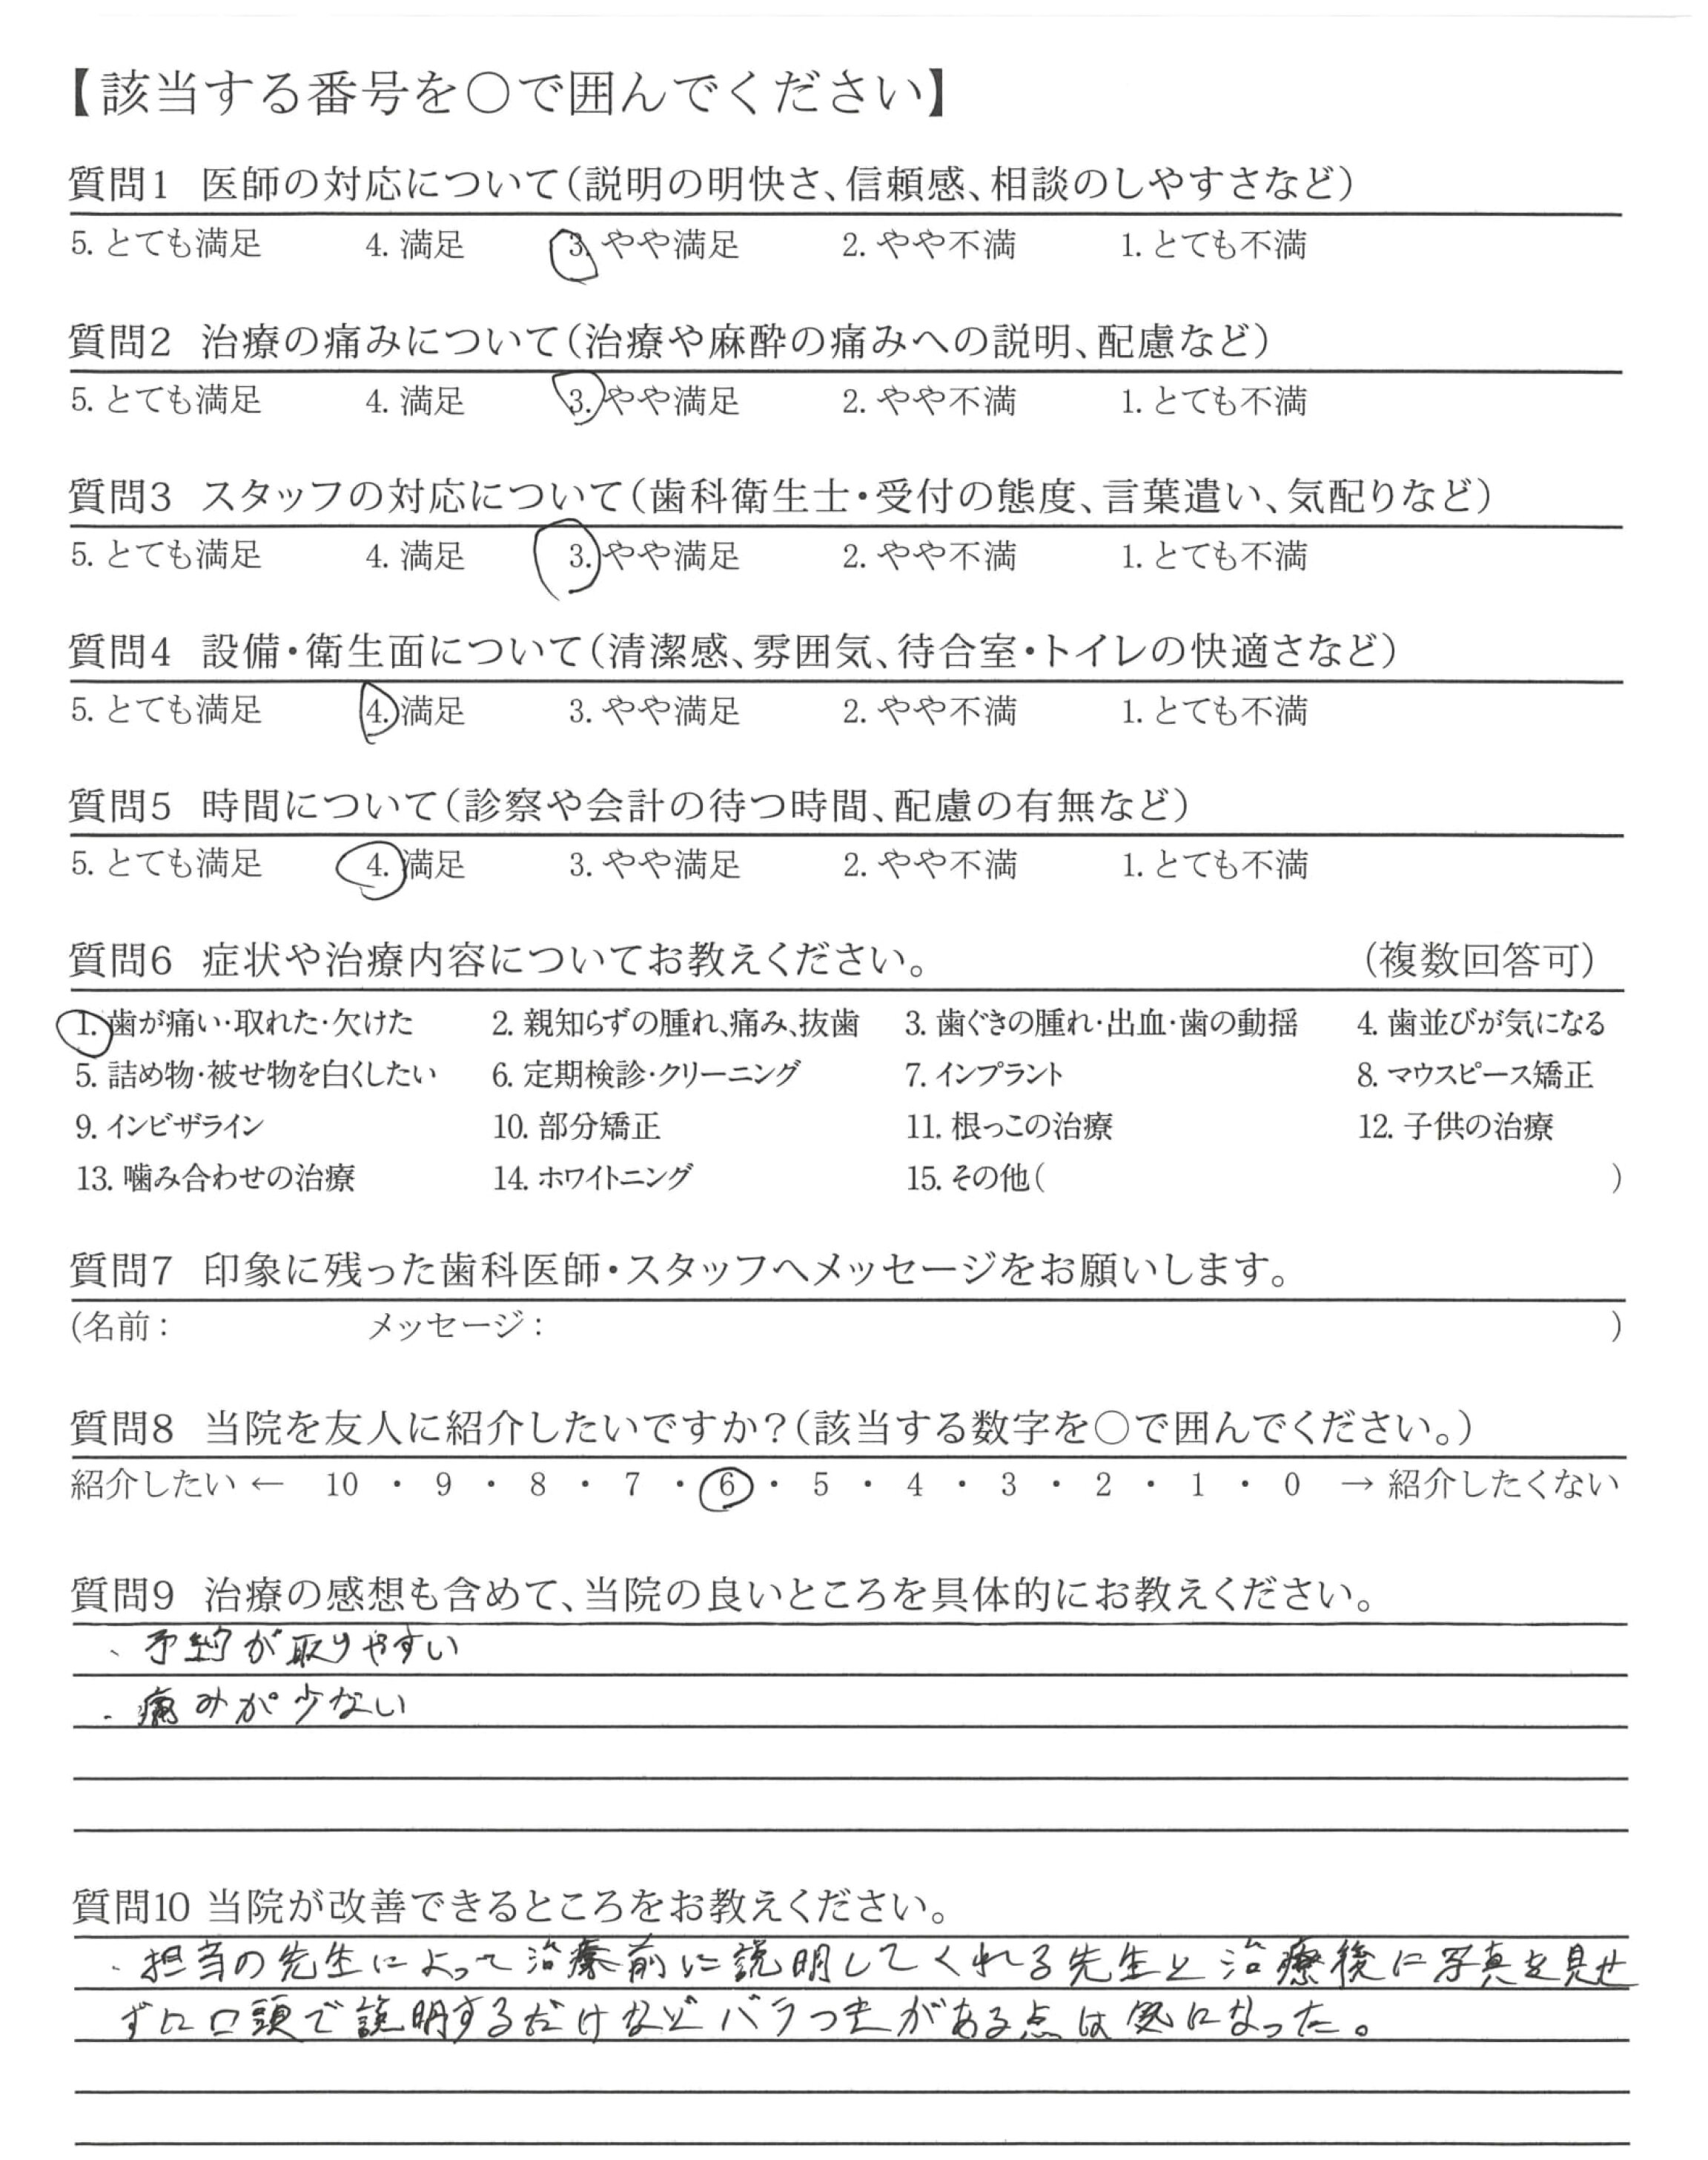 【該当する番号を○で囲んでください】
質問1 医師の対応について(説明の明快さ、信頼感、相談のしやすさなど)
5. とても満足 4. 満足 3. やや満足 2. やや不満 1. とても不満
質問2 治療の痛みについて(治療や麻酔の痛みへの説明、配慮など)
5. とても満足 4. 満足 3. やや満足 2. やや不満 1. とても不満
質問3 スタッフの対応について(歯科衛生士・受付の態度、言葉遣い、気配りなど)
5. とても満足 4. 満足 3. やや満足 2. やや不満 1. とても不満
質問4 設備・衛生面について(清潔感、雰囲気、待合室・トイレの快適さなど)
5. とても満足 4. 満足 3. やや満足 2. やや不満 1. とても不満
質問5 時間について(診察や会計の待つ時間、配慮の有無など)
5. とても満足 4. 満足 3. やや満足 2. やや不満 1. とても不満
質問6 症状や治療内容についてお教えください。 (複数回答可)
1. 歯が痛い・取れた・欠けた 2. 親知らずの腫れ、痛み、抜歯 3. 歯ぐきの腫れ・出血・歯の動揺 4. 歯並びが気になる
5. 詰め物・被せ物を白くしたい 6. 定期検診・クリーニング 7. インプラント 8. マウスピース矯正
9. インビザライン 10. 部分矯正 11. 根っこの治療 12. 子供の治療
13. 噛み合わせの治療 14. ホワイトニング 15. その他( )
質問7 印象に残った歯科医師・スタッフへメッセージをお願いします。
(名前: メッセージ: )
質問8 当院を友人に紹介したいですか?(該当する数字を○で囲んでください。)
紹介したい ← 10 ・ 9 ・ 8 ・ 7 ・ 6 ・ 5 ・ 4 ・ 3 ・ 2 ・ 1 ・ 0 → 紹介したくない
質問9 治療の感想も含めて、当院の良いところを具体的にお教えください。
・予約が取りやすい
・痛みが少ない
質問10 当院が改善できるところをお教えください。
・担当の先生によって治療前に説明してくれる先生と治療後に写真を見せ
ずに口頭で説明するだけなどバラつきがある点は気になった。